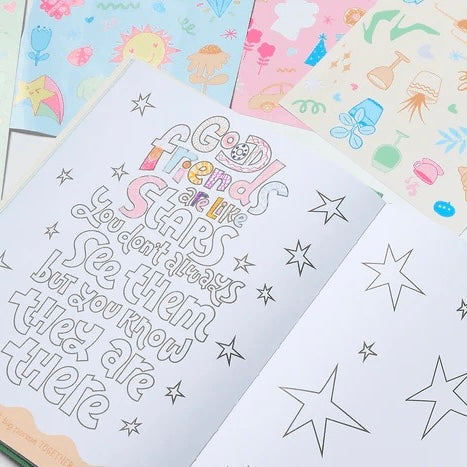 GOOD
friends
ARE LIKE
STARS
you don't always
SEE tHEM
but you KNOW
tHEy ARE
tHERE
big bloom TOGETHER